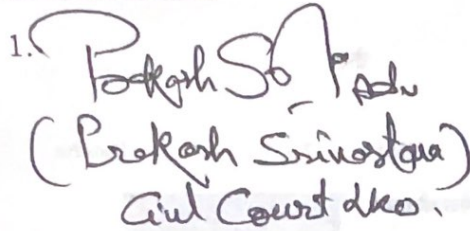 1. Prakash Sr Adv
(Prakash Srivastava)
Civil Court Lko.